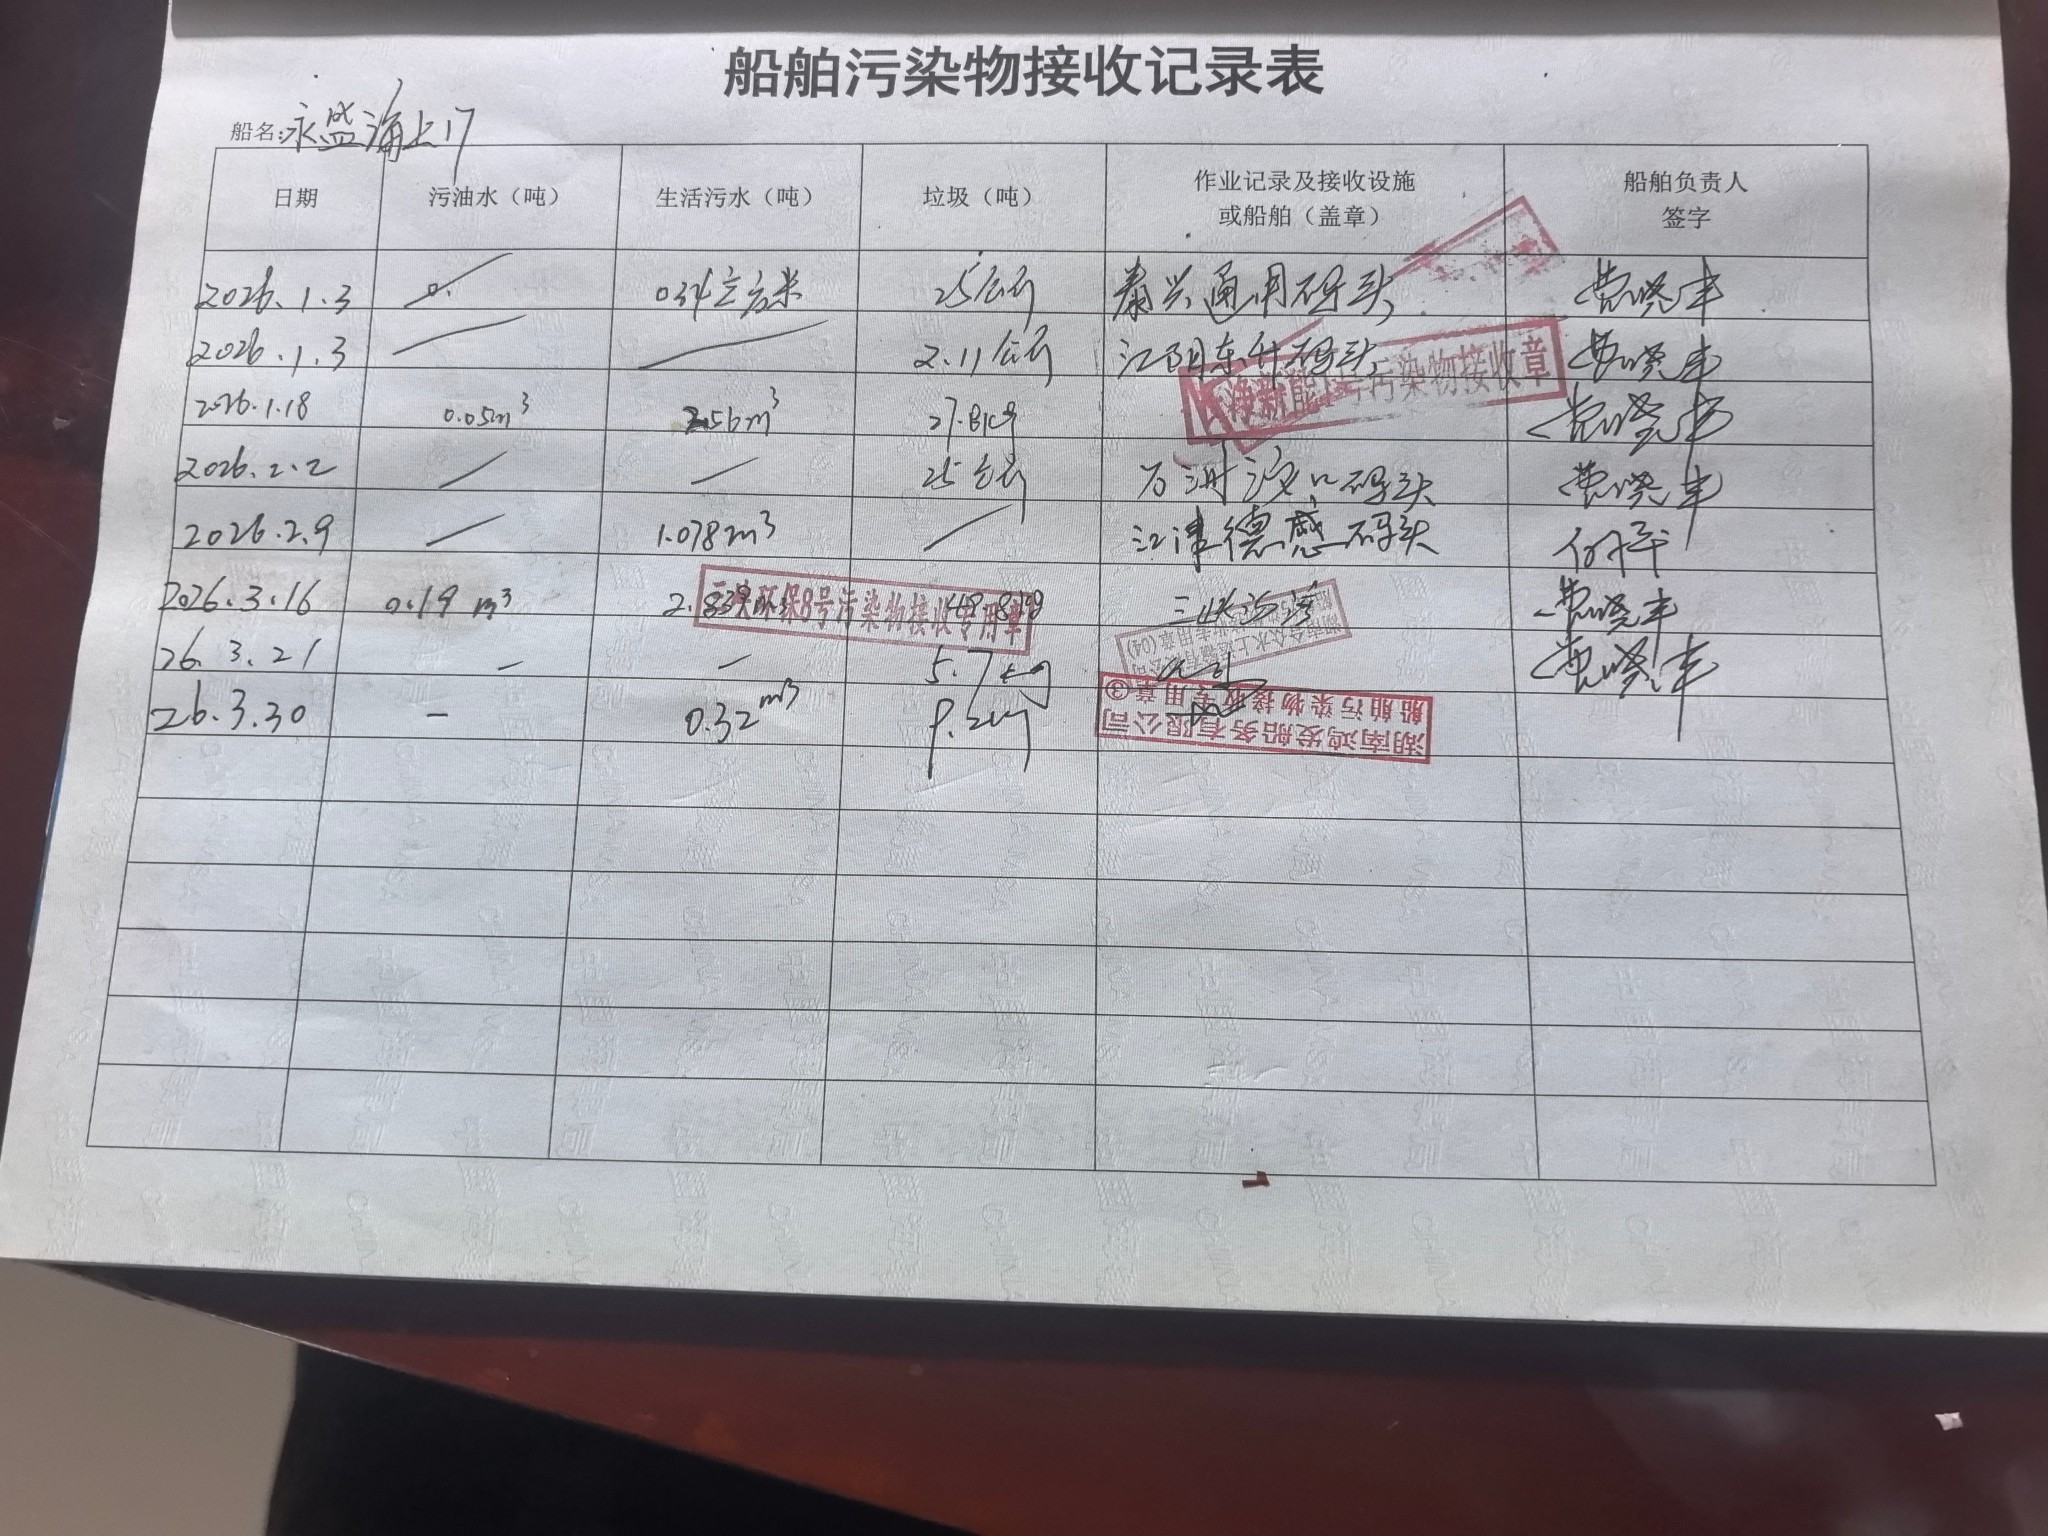 船舶污染物接收记录表
船名:永盛海上17
日期 污油水（吨） 生活污水（吨） 垃圾（吨） 作业记录及接收设施或船舶（盖章） 船舶负责人签字
2026.1.3 0. 0.34立方米 25公斤 泰兴通用码头 费晓丰
2026.1.3 2.11公斤 江阴东升码头 费晓丰
净新能1号污染物接收章
2026.1.18 0.05m³ 2.56m³ 27.81kg 费晓丰
2026.2.2 25公斤 码头 费晓丰
2026.2.9 1.078m³ 江津德感码头 何平
2026.3.16 0.19 m³ 2.839 48.8kg 三峡 费晓丰
环保8号污染物接收专用章
26.3.21 - - 5.7kg 费晓丰
26.3.30 - 0.32m³ 9.2kg
湖南鸿发船务有限公司
船舶污染物接收专用章③